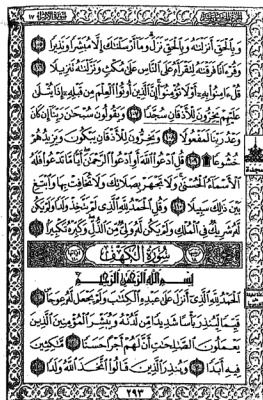 سورة الإسراء ١٧
وَبِالْحَقِّ أَنزَلْنَاهُ وَبِالْحَقِّ نَزَلَ وَمَا أَرْسَلْنَاكَ إِلَّا مُبَشِّرًا وَنَذِيرًا ١٠٥
وَقُرْآنًا فَرَقْنَاهُ لِتَقْرَأَهُ عَلَى النَّاسِ عَلَى مُكْثٍ وَنَزَّلْنَاهُ تَنزِيلًا ١٠٦
قُلْ آمِنُوا بِهِ أَوْ لَا تُؤْمِنُوا إِنَّ الَّذِينَ أُوتُوا الْعِلْمَ مِن قَبْلِهِ إِذَا يُتْلَى
عَلَيْهِمْ يَخِرُّونَ لِلْأَذْقَانِ سُجَّدًا ١٠٧ وَيَقُولُونَ سُبْحَانَ رَبِّنَا إِن كَانَ
وَعْدُ رَبِّنَا لَمَفْعُولًا ١٠٨ وَيَخِرُّونَ لِلْأَذْقَانِ يَبْكُونَ وَيَزِيدُهُمْ
خُشُوعًا ۩ ١٠٩ قُلِ ادْعُوا اللَّهَ أَوِ ادْعُوا الرَّحْمَنَ أَيًّا مَّا تَدْعُوا فَلَهُ
الْأَسْمَاءُ الْحُسْنَى وَلَا تَجْهَرْ بِصَلَاتِكَ وَلَا تُخَافِتْ بِهَا وَابْتَغِ
بَيْنَ ذَلِكَ سَبِيلًا ١١٠ وَقُلِ الْحَمْدُ لِلَّهِ الَّذِي لَمْ يَتَّخِذْ وَلَدًا وَلَمْ يَكُن
لَّهُ شَرِيكٌ فِي الْمُلْكِ وَلَمْ يَكُن لَّهُ وَلِيٌّ مِّنَ الذُّلِّ وَكَبِّرْهُ تَكْبِيرًا ١١١
سُورَةُ الْكَهْفِ
بِسْمِ اللَّهِ الرَّحْمَنِ الرَّحِيمِ
الْحَمْدُ لِلَّهِ الَّذِي أَنزَلَ عَلَى عَبْدِهِ الْكِتَابَ وَلَمْ يَجْعَل لَّهُ عِوَجًا ١
قَيِّمًا لِّيُنذِرَ بَأْسًا شَدِيدًا مِّن لَّدُنْهُ وَيُبَشِّرَ الْمُؤْمِنِينَ الَّذِينَ
يَعْمَلُونَ الصَّالِحَاتِ أَنَّ لَهُمْ أَجْرًا حَسَنًا ٢ مَّاكِثِينَ
فِيهِ أَبَدًا ٣ وَيُنذِرَ الَّذِينَ قَالُوا اتَّخَذَ اللَّهُ وَلَدًا ٤
٢٩٣
سجدة